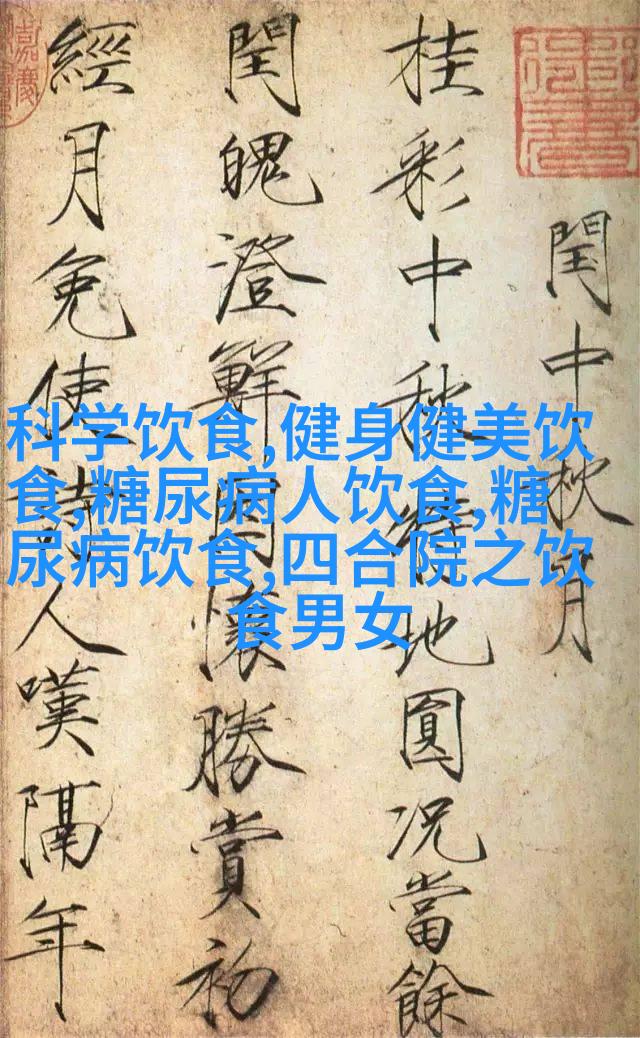 閏中秋月
桂彩中秋特地圓况當餘
閏魄澄鮮因懷勝賞初
經月免使詩人嘆隔年
科学饮食,健身健美饮
食,糖尿病人饮食,糖
尿病饮食,四合院之饮
食男女